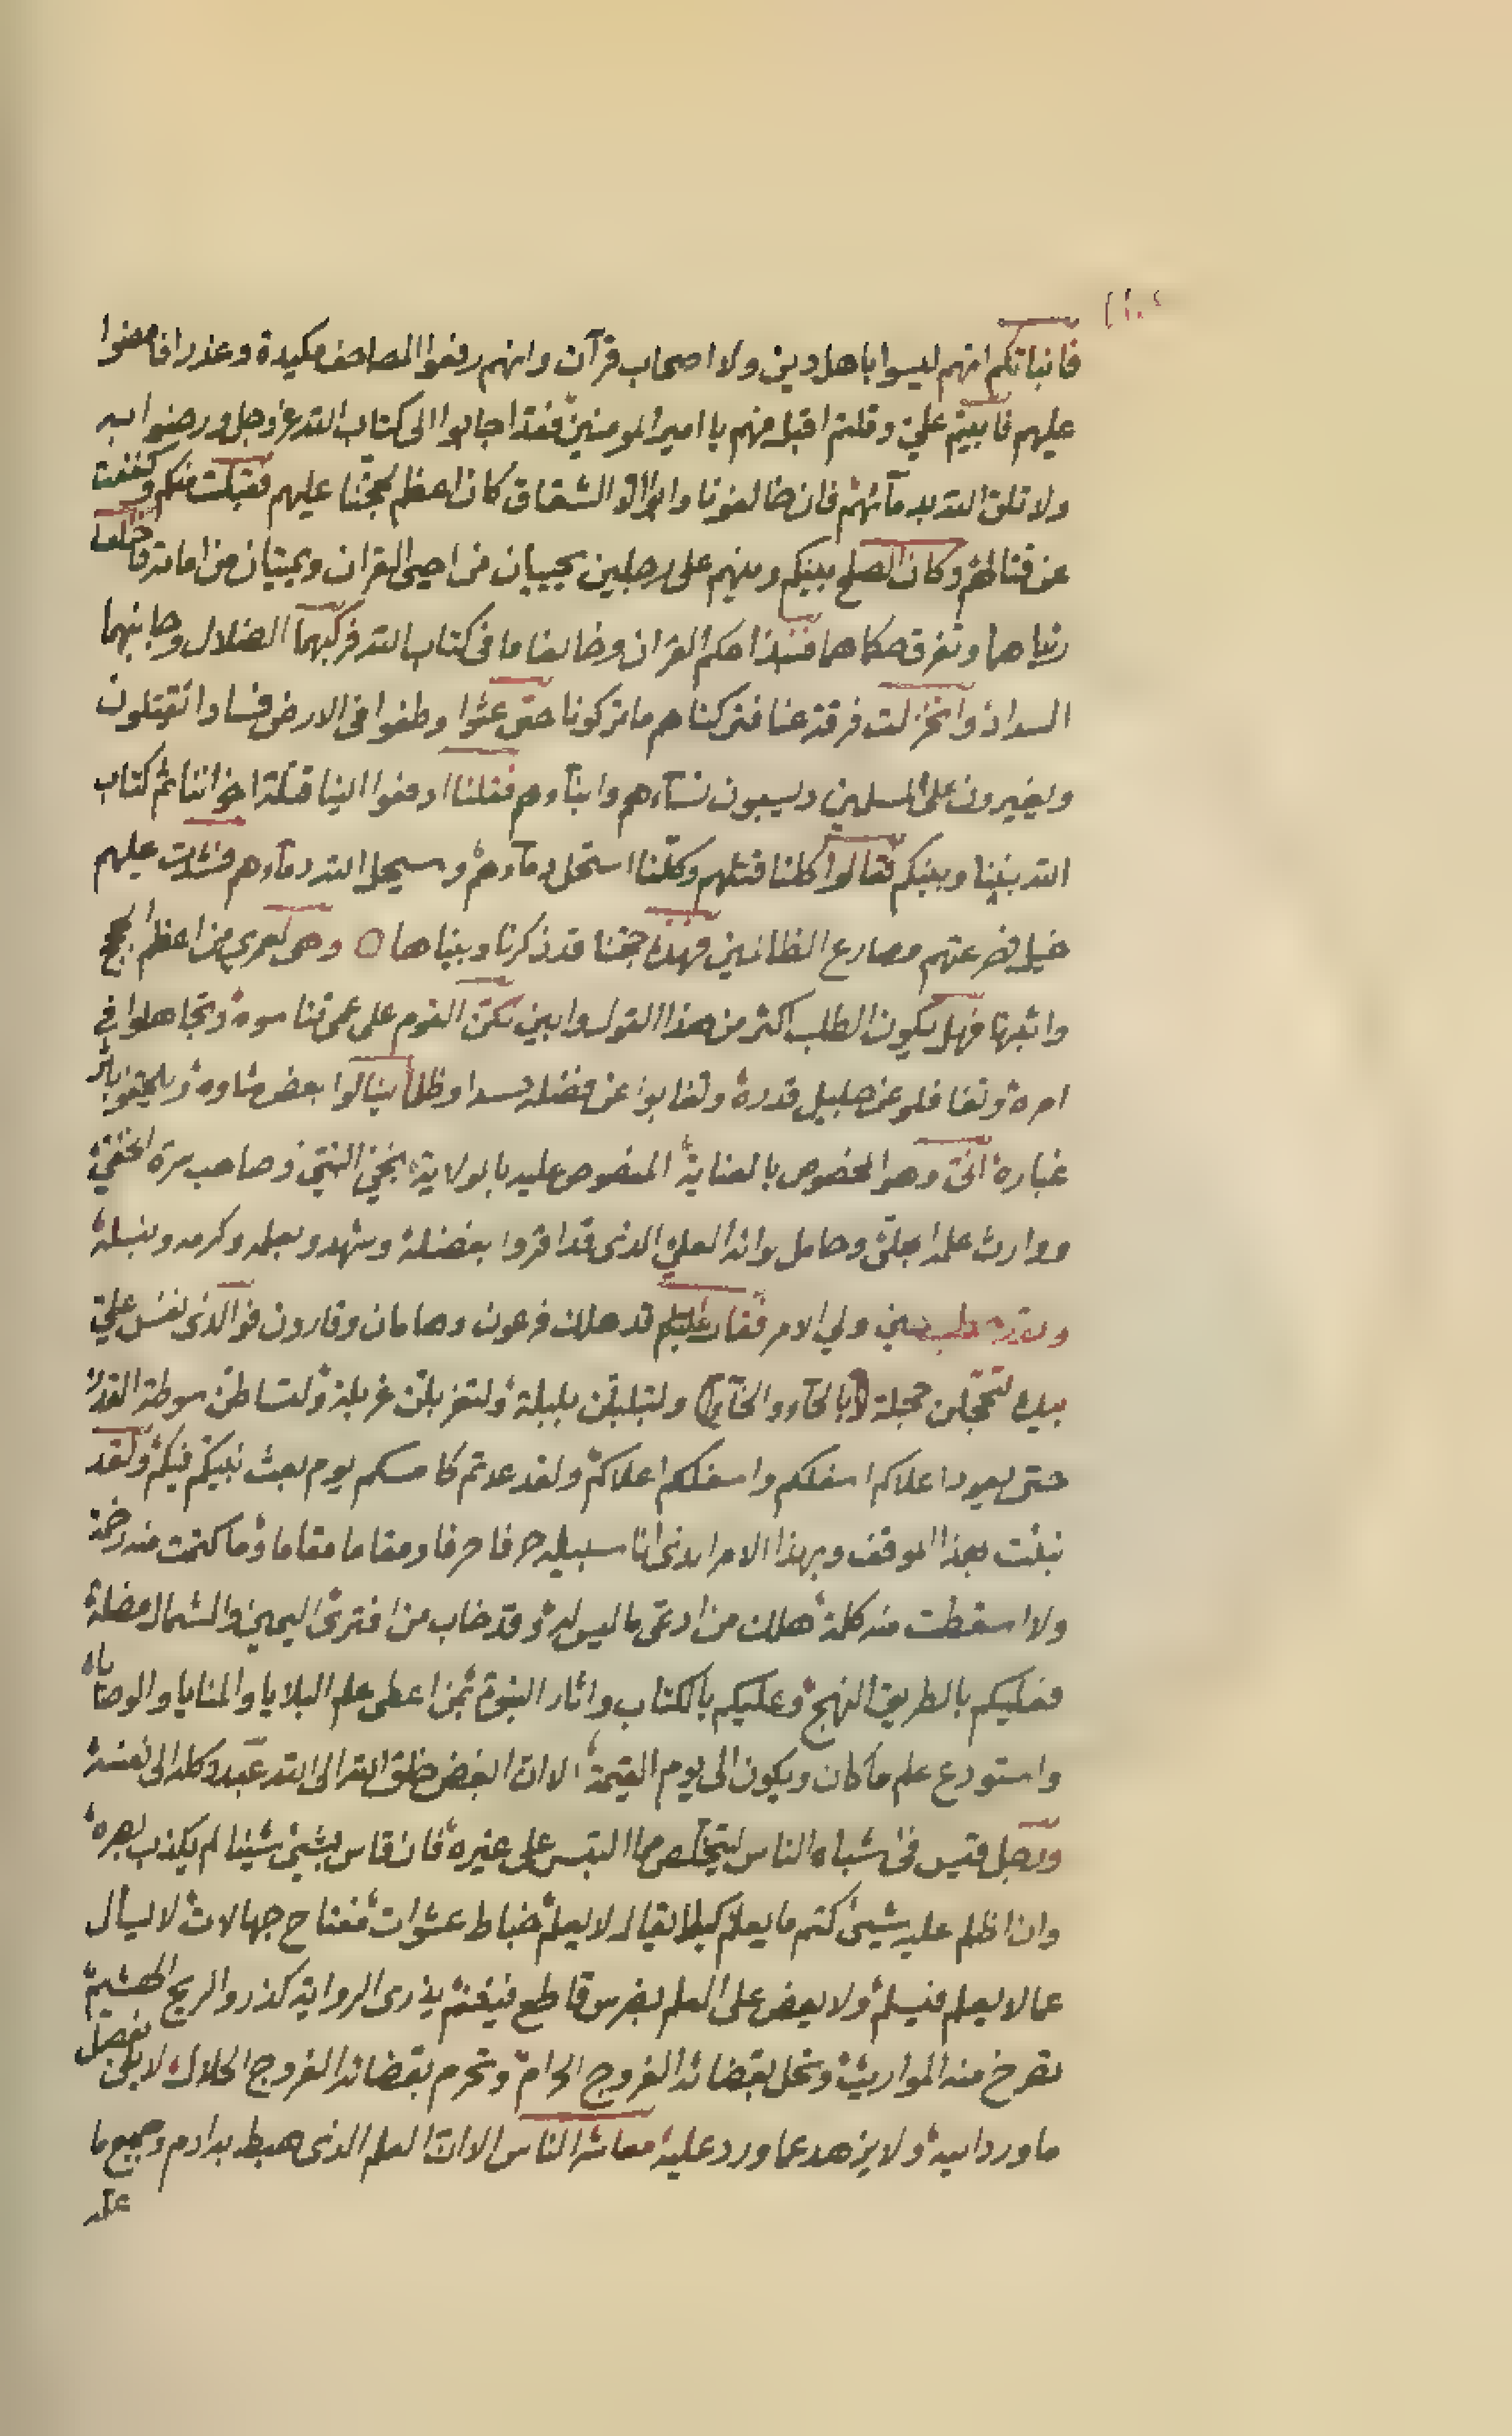 فانباتكم انهم ليسوا باهل دين ولا اصحاب قرآن وانهم رفعوا المصاحف مكيدة وعذرا فامضوا
عليهم فابيتم علي وقلتم اقبل منهم يا امير المومنين فقد اجابوا الى كتاب الله عز وجل ورضوا به
فان خالفونا وابوا الا الشقاق كان اعظم لحجتنا عليهم فقبلت منكم وكففت
عنهم وكان الصلح بينكم وبينهم على رجلين يحييان من احيى القران ويميتان من اماته فاختلف
رايهما وتفرق حكمهما فنبذا حكم القران وخالفا ما في كتاب الله فركبهما الضلال وجانبهما
السداد وانخزلت فرقة عنا فتركناهم ما تركونا حتى عثوا وطغوا في الارض فسادا يقتلون
ويغيرون على المسلمين ويسبون نسآءهم وابنآءهم فقلنا ادفعوا الينا قتلة اخواننا ثم كتاب
الله بيننا وبينكم فقالوا كلنا قتلهم وكلنا استحل دمآءهم وسيحل الله دمآءهم فشدت عليهم
خيل فصرعتهم مصارع الظالمين فهذه حجتنا قد ذكرنا وبيناها وهى لعمري من اعظم الحجج
وابهرها فهل يكون الطلب اكثر من هذا القول وابين لكن القوم على عمى تناسوه وتجاهلوا في
امره وتغافلوا عن جليل قدره وتغابوا عن فضله حسدا وظلما لينالوا بعض شاوه ويلحقوا باثر
غباره انى وهو المخصوص بالعناية المنصوص عليه بالولاية نجي النبي وصاحب سره الخفي
ووارث علمه الجلي وحامل لوائه العلي الذى قد اقروا بفضله وشهدوا بعلمه وكرمه ونبله
ولي الامر فقال قد هلك فرعون وهامان وقارون فوالذى نفس علي
بيده لتخجلن حجلة (بالحآء والخآء) ولتبلبلن بلبلة ولتغربلن غربلة ولتساطن سوطة القدر
حتى يعود اعلاكم اسفلكم واسفلكم اعلاكم ولقد عدتم كامسكم يوم بعث نبيكم فيكم ولقد
نبئت بهذا الموقف وبهذا الامر الذى انا سبيله حرفا حرفا ومقاما مقاما وما كتمت منه رخمة
ولا اسقطت منه كلمة هلك من ادعى ما ليس له وقد خاب من افترى اليمين والشمال مضلة
فعليكم بالطريق النهج وعليكم بالكتاب واثار النبوة ثم من اعطى علم البلايا والمنايا والوصايا
واستودع علم ما كان ويكون الى يوم القيمة الا ان ابغض خلق الله الى الله عبد وكله الى نفسه
ورجل قمس في اشباه الناس ليتخلص مما التبس على غيره فان قاس بشيئ شيئا لم يكذب بصره
وان اظلم عليه شيئ كتم ما يعلم كيلا يقال له لا يعلم خباط عشوات مفتاح جهالات لا يسأل
عما لا يعلم فيسلم ولا يعض على العلم بضرس قاطع فيغنم يذرى الرواية كذرو الريح الهشيم
تصرخ منه المواريث وتحل بقضائه الفروج الحرام وتحرم بقضائه الفروج الحلال لا يلى بفصل
ما ورد اليه ولا يزهد عما ورد عليه معاشر الناس الا ان العلم الذى هبط به ادم وجميع ما